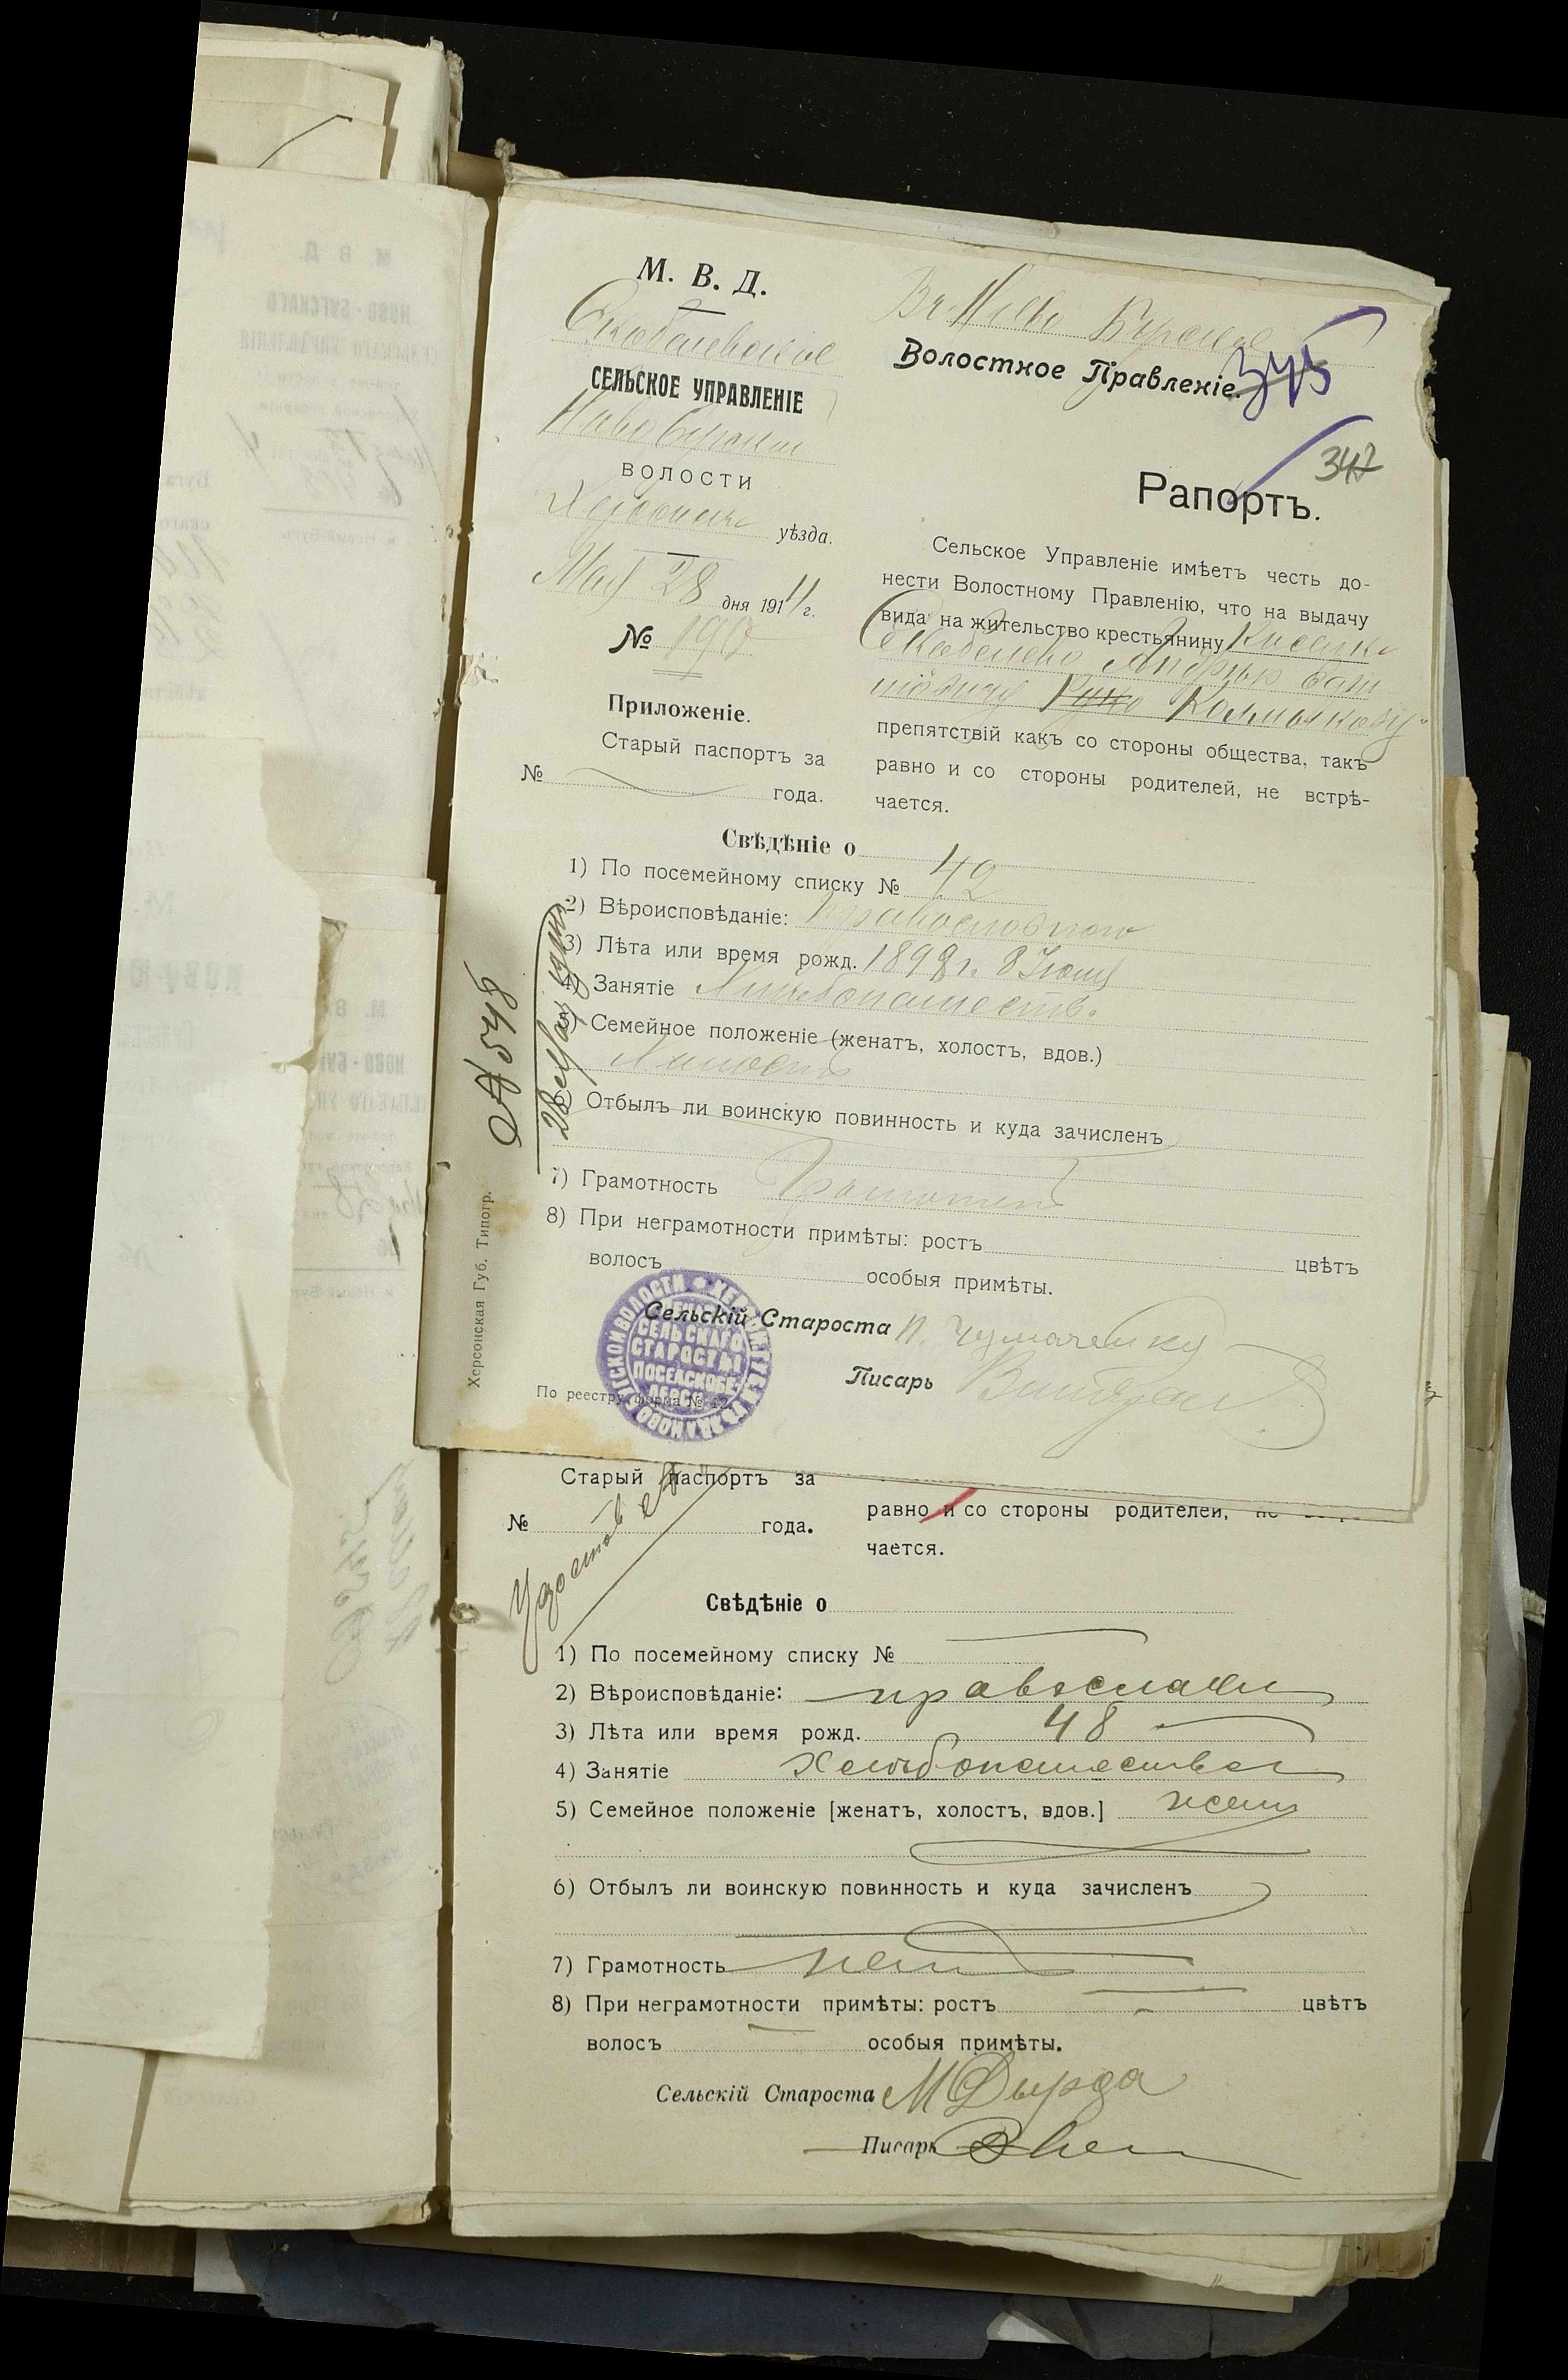 М. В. Д.
Скобелевское
СЕЛЬСКОЕ УПРАВЛЕНІЕ
Ново Бугской
ВОЛОСТИ
Херсонскаго уѣзда.
Мая 28 дня 1911 г.
№ 190
Приложеніе.
Старый паспортъ за
№ года.
Въ Ново Бугское
Волостное Правленіе.
345
347
Рапортъ.
Сельское Управленіе имѣетъ честь до-
нести Волостному Правленію, что на выдачу
вида на жительство крестьянину
Скобелево Андрею
препятствій какъ со стороны общества, такъ
равно и со стороны родителей, не встрѣ-
чается.
Свѣдѣніе о
1) По посемейному списку № 42
2) Вѣроисповѣданіе: православнаго
3) Лѣта или время рожд. 1892 г. 8 Іюня
4) Занятіе хлебопашеств.
5) Семейное положеніе (женатъ, холостъ, вдов.)
Холостъ
Отбылъ ли воинскую повинность и куда зачисленъ
7) Грамотность Грамотенъ
8) При неграмотности примѣты: ростъ цвѣтъ
волосъ особыя примѣты.
Сельскій Староста П. Чумаченко
Писарь
По реестру форма № 12.
Херсонская Губ. Типогр.
№ 548
28 Мая
СЕЛЬСКАГО
СТАРОСТЫ
ПОС. СКОБЕ-
ЛЕВО
Старый паспортъ за
№ года.
равно и со стороны родителей,
чается.
Свѣдѣніе о
1) По посемейному списку №
2) Вѣроисповѣданіе: православн
3) Лѣта или время рожд. 48
4) Занятіе Хлебопашество
5) Семейное положеніе [женатъ, холостъ, вдов.] жен
6) Отбылъ ли воинскую повинность и куда зачисленъ
7) Грамотность нетъ
8) При неграмотности примѣты: ростъ цвѣтъ
волосъ особыя примѣты.
Сельскій Староста М Дырда
Писарь